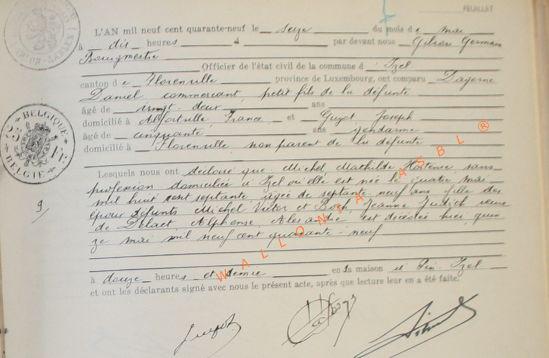 FEUILLET
L'AN mil neuf cent quarante-neuf le seize du mois de mai
à dix heures à par devant nous Gilson Germain
Bourgmestre Officier de l'état civil de la commune d' Izel
canton de Florenville province de Luxembourg, ont comparu
Daniel, commerçant, petit fils de la défunte
âgé de vingt-deux ans
domicilié à Alfortville, France et Guyot Joseph
âgé de cinquante ans gendarme
domicilié à Florenville non parent de la défunte
Lesquels nous ont déclaré que Michel, Mathilde Hortence sans
profession domiciliée à Izel où elle est née le quatre mai
mil huit cent septante, âgée de septante-neuf ans fille des
époux défunts Michel Victor et Jeanne Judith veuve
de Alphonse, Alexandre, est décédée hier, quin-
ze mai mil neuf cent quarante-neuf
à douze heures et demie en sa maison à Izel
et ont les déclarants signé avec nous le présent acte, après que lecture leur en a été faite.
BELGIQUE
BELGIË
9
WALLONIA ASBL ®